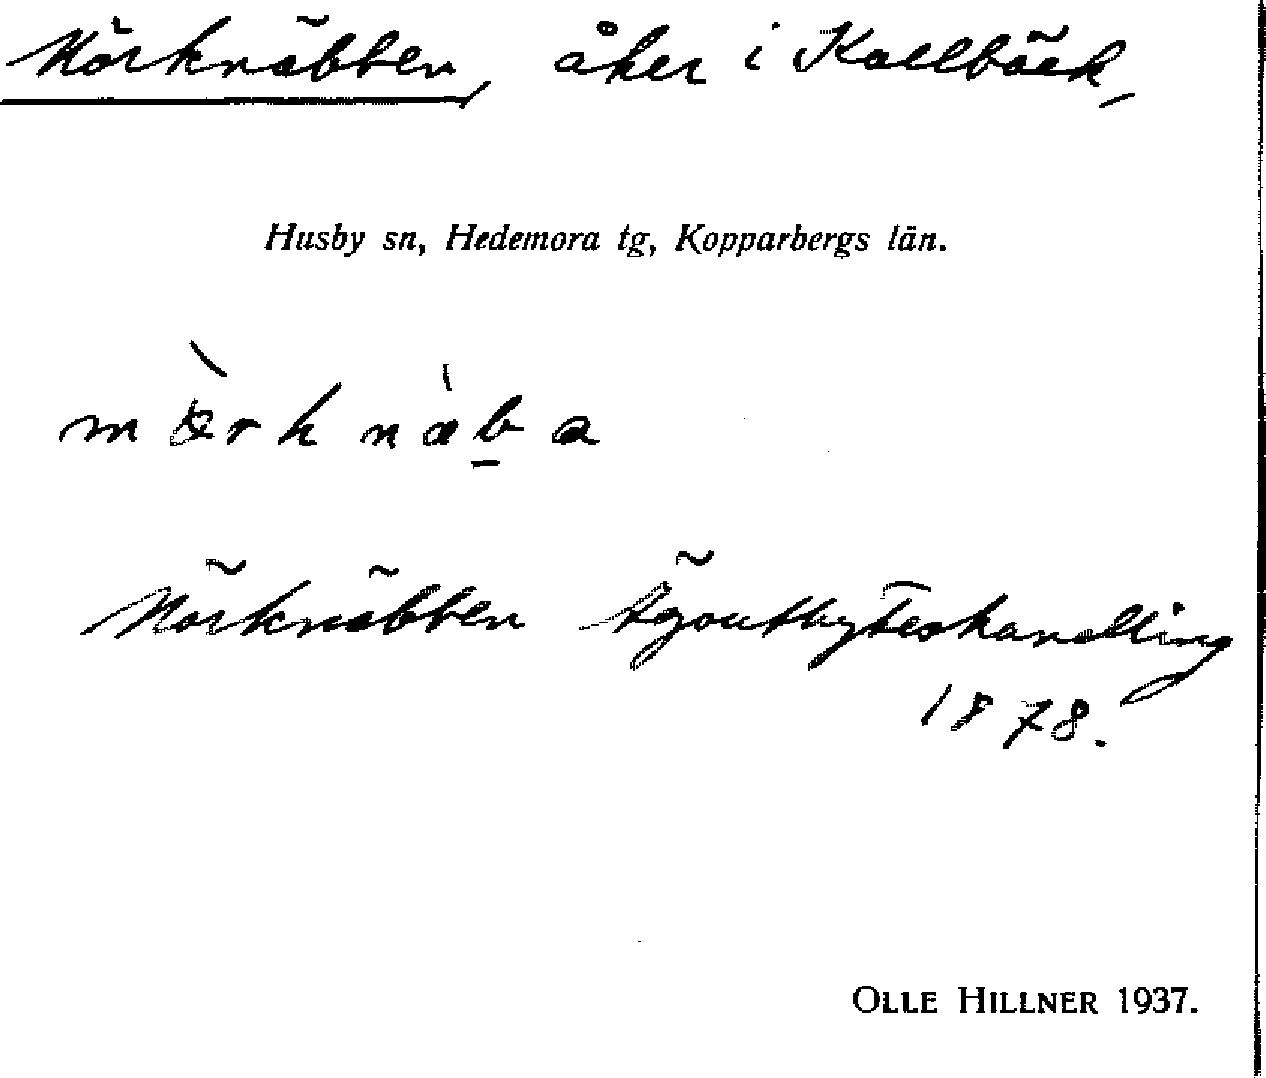 Mörknäbben, åker i Kallbäck,
Husby sn, Hedemora tg, Kopparbergs län.
mə̀rknàb̲a
Mörknäbben Ägoutbyteshandling
1878.
OLLE HILLNER 1937.